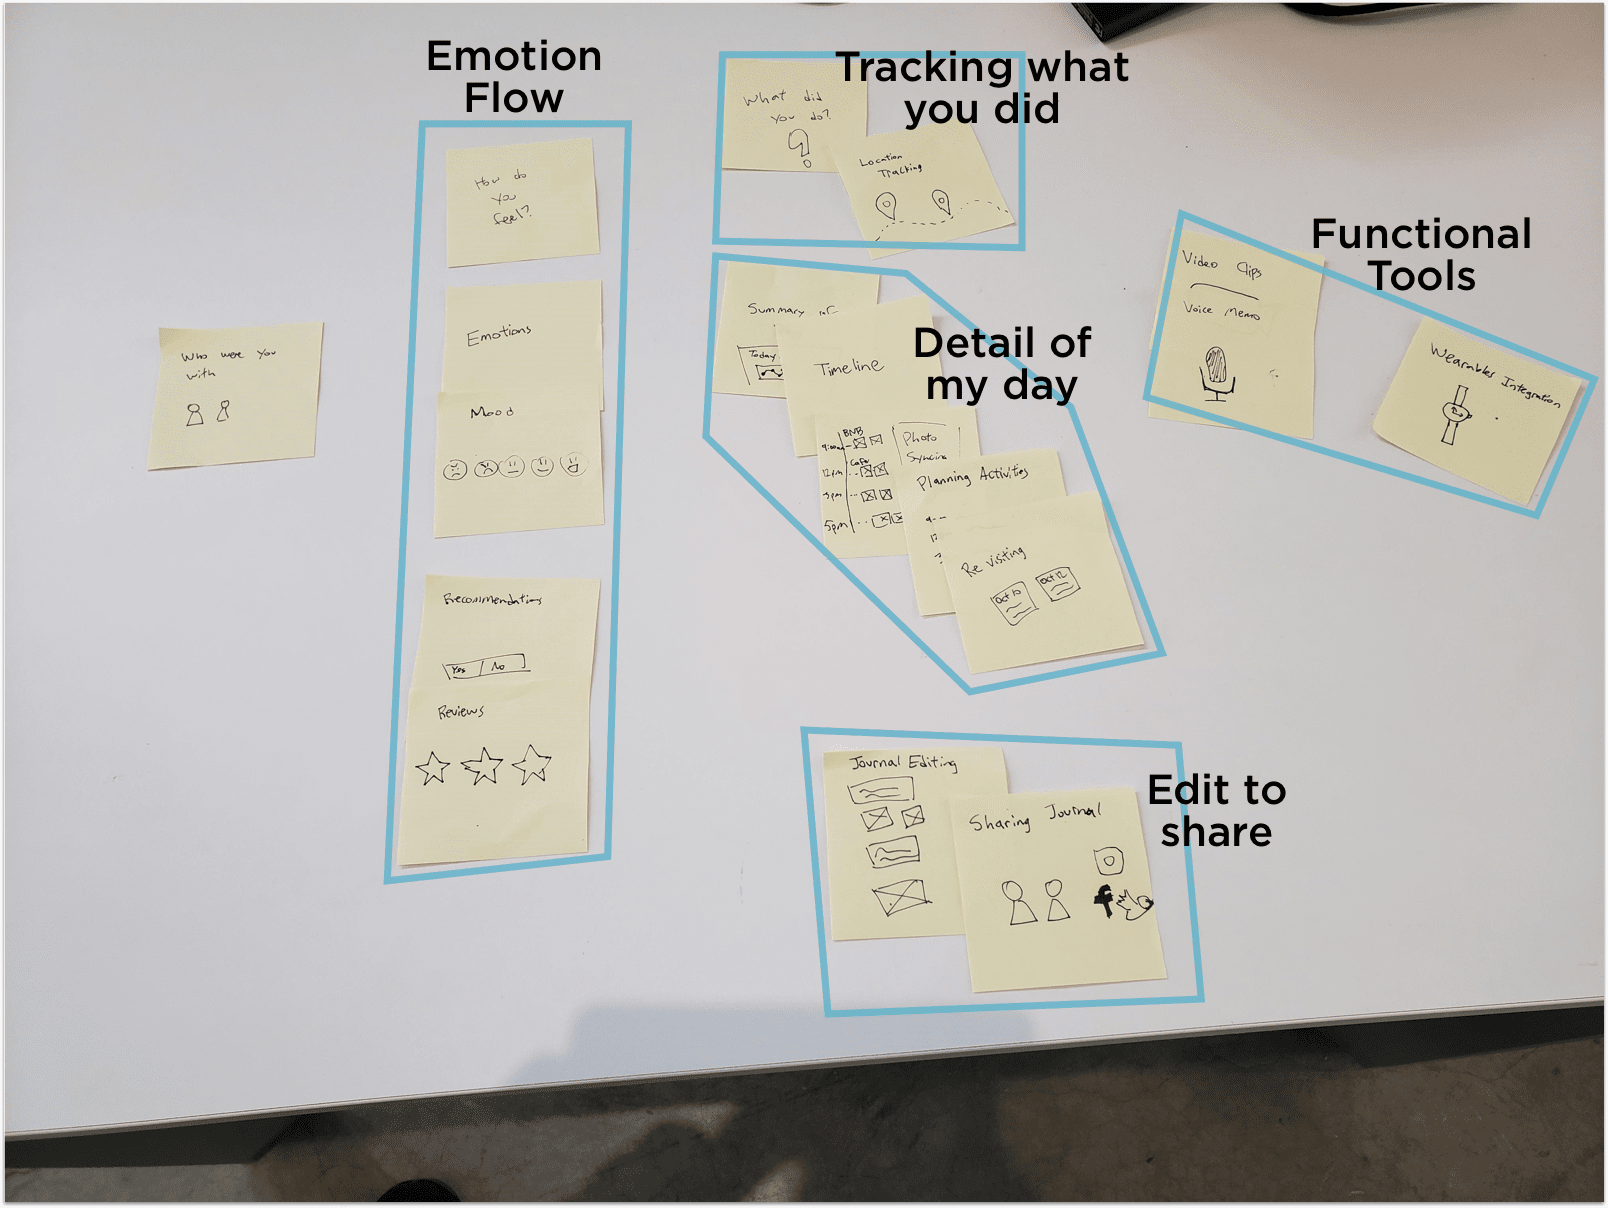 Emotion
Flow
How do
you
feel?
Emotions
Mood
Recommendations
Yes No
Reviews
Who were you
with
Tracking what
you did
What did
you do?
Location
Tracking
Detail of
my day
Summary of
Today
Timeline
BNB
9:00am
Cafe
12pm
3pm
5pm
Photo
Syncing
Planning Activities
9
12
Re visiting
Oct 10
Oct 12
Functional
Tools
Video Clips
Voice Memo
Wearables Integration
Edit to
share
Journal Editing
Sharing Journal
f